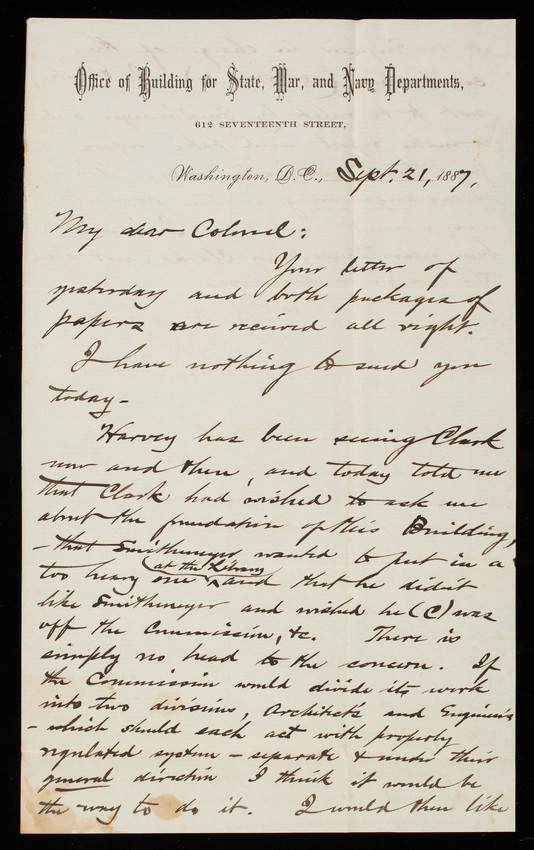 Office of Building for State, War, and Navy Departments,
612 SEVENTEENTH STREET,
Washington, D.C., Sept. 21, 1887,
My dear Colonel:
Your letter of
yesterday and both packages of
papers are received all right.
I have nothing to send you
today-
Harvey has been seeing Clark
now and then, and today told me
that Clark had wished to ask me
about the foundation of this Building,
- that Smithmeyer wanted to put in a
too heavy one at the Library and that he didn't
like Smithmeyer and wished he (C) was
off the Commission, &c. There is
simply no head to the concern. If
the Commission would divide its work
into two divisions, Architect's and Engineer's
- which should each act with properly
regulated system - separate & under their
general direction I think it would be
the way to do it. I would then like